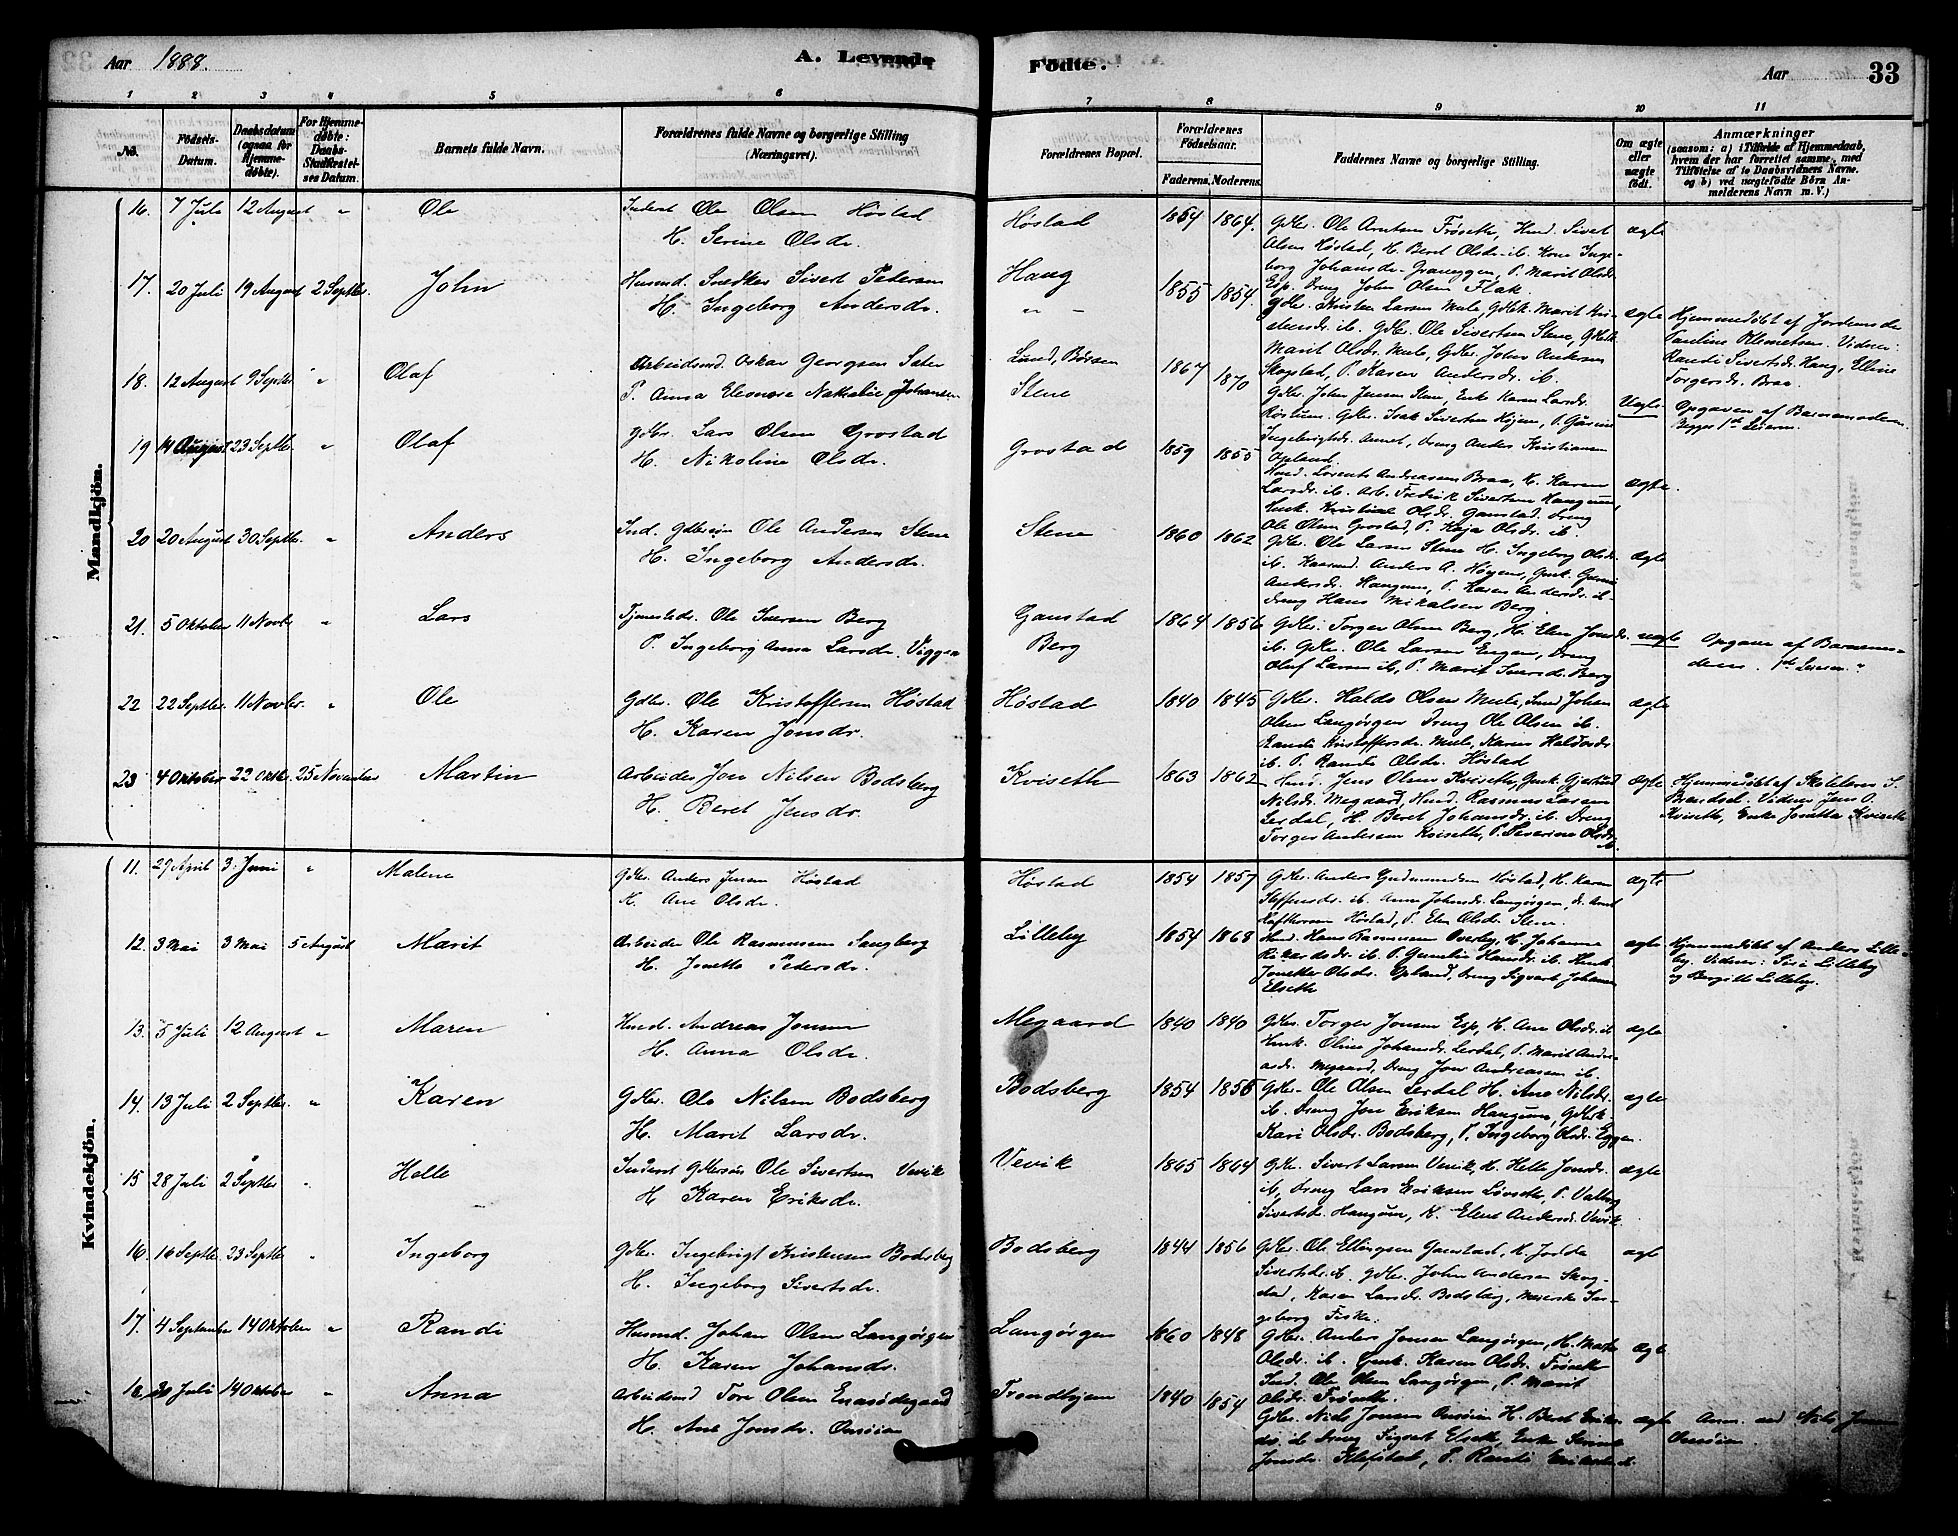 Aar 1888.
A. Levende Fødte.
Aar
33
1 2 3 4 5 6 7 8 9 10 11
No.
Fødsels-Datum.
Daabsdatum (ogsaa for Hjemme-døbte).
For Hjemme-døbte: Daabs-Stadfæstel-ses Datum.
Barnets fulde Navn.
Forældrenes fulde Navne og borgerlige Stilling (Næringsvei).
Forældrenes Bopæl.
Forældrenes Fødselsaar.
Faderens. Moderens.
Faddernes Navne og borgerlige Stilling.
Om ægte eller uægte født.
Anmærkninger
(saasom: a) i Tilfælde af Hjemmedaab, hvem der har forrettet samme, med Tilføielse af to Daabsvidners Navne. og b) ved uægtefødte Børn An-melderens Navn m. V.)
Mandkjøn.
16. 7 Juli 12 August " Ole
Inderst Ole Olsen Høstad
H. Serine Olsdr.
Høstad 1854 1864.
Gdbr. Ole Arntsen Frøseth, Husmd. Sivert
Olsen Høstad, H. Beret Olsdr. ib. Kone Inge-
borg Johansdr. Graneggen, P. Marit Olsdr.
Esp. Dreng John Olsen Flak.
ægte
17. 20 Juli 19 August 2 Septbr. John
Husmd. Snedker Sivert Pedersen
H. Ingeborg Andersdr.
Haug
" -
1855 1854.
Gdbr. Kristen Larsen Mule, Gdbk. Marit Kri-
stensdr. ib. Gdbr. Ole Sivertsen Stene, Gdbk.
Marit Olsdr. Mule, Gdbr. John Andersen
Skogstad, P. Karen Andersdr. ib.
ægte
Hjemmedøbt af Jordemoder
Pauline Klemetsen. Vidner:
Randi Sivertsdr. Haug, Elline
Torgersdr. Braa.
18. 12 August 9 Septbr. " Olaf
Arbeidsmd. Oskar Georgsen Sæter
P. Anna Eleonora Nathalie Johansen
Lund, Børsen
Stene
1867 1870
Gdbr. John Jensen Stene, Enke Karen Larsdr.
Gdbr. Isak Sivertsen Høyem, P. Gurine
Ingebrigtsdr. Dreng Anders Kristiansen
Opland.
Uægte.
Opgaven af Barnemoderen.
Begges 1ste Leierm.
19 14 August 23 Septbr. " Olaf
Gdbr. Lars Olsen Grostad
H. Nikoline Olsdr.
Grostad 1859 1855
Husmd. Lorents Andreassen Braa, H. Karen
Larsdr. ib. Arb. Fredrik Sivertsen Haugum,
Husk. Kristine Olsdr. Gaustad, Dreng
Ole Olsen Grostad, P. Kaja Olsdr. ib.
ægte.
20 20 August 30 Septbr. " Anders
Ind. Gdbrsøn Ole Andersen Stene
H. Ingeborg Andersdr.
Stene 1860 1862
Gdbr. Ole Larsen Stene H. Ingeborg Olsdr.
ib. Kaarmd. Anders A. Høyem, Gmk. Gurine
Andersdr. Haugum, P. Karen Andersdr. ib.
Dreng Hans Mikalsen Berg.
ægte
21. 5 Oktober 11 Novbr. " Lars
Tjenestedr. Ole Iversen Berg
P. Ingeborg Anna Larsdr. Viggen
Gaustad
Berg
1864 1856
Gdbr. Torger Olsen Berg, H. Elen Jonsdr.
ib. Gdbr. Ole Larsen Engen, Dreng
Oluf Larsen ib, P. Marit Iversdr. Berg
uægte
Opgave af Barnemo-
deren. 1ste Leierm. "
22 22 Septbr. 11 Novbr. " Ole
Gdbr. Ole Kristoffersen Høstad
H. Karen Jonsdr.
Høstad 1840 1845
Gdbr. Haldo Olsen Mule, Smd Johan
Olsen Langørgen Dreng Ole Olsen ib.
Randi Kristoffersdr. Mule, Karen Haldosdr.
ib. P. Randi Olsdr. Høstad
ægte
23 4 Oktober 22 Oktb. 25 November Martin
Arbeider Jon Nilsen Bodsberg
H. Beret Jensdr.
Kviseth 1863 1862
Husmd. Jens Olsen Kviseth, Gmk. Gjertrud
Nilsdr. Megaard, Husmd. Rasmus Larsen
Lerdal, H. Beret Johansdr. ib. Dreng
Torger Andersen Kviseth, P. Severine Olsdr.
ib.
ægte
Hjemmedøbt af Skolelærer S.
Brandsel. Vidner Jens O.
Kviseth, Enke Jonetta Kviseth
Kvindekjøn.
11. 29 April 3. Juni " Malene
Gdbr. Anders Jensen Høstad
H. Ane Olsdr.
Høstad 1854 1857
Gdbr. Anders Gudmundsen Høstad, H. Karen
Steffensdr. ib. Anne Johnsdr. Langørgen, D. Arnt
Høstad, P. Elen Olsdr. Stene
ægte
12. 3 Mai 3 Mai 5 August Marit
Arbeider Ole Rasmussen Sangberg
H. Jonetta Pedersdr.
Lilleby 1854 1868
Husmd. Hans Rasmussen Overby, H. Johanna
Rikardsdr. ib. P. Gunelie Hansdr. ib. Husk.
Jonetta Olsdr. Opland, Dreng Sigvart Johansen
Elseth
ægte
Hjemmedøbt af Anders Lille-
by. Vidner: Siri Lilleby
og Bergitte Lilleby.
13. 5 Juli 12 August " Maren
Husmd. Andreas Jonsen
H. Anna Olsdr.
Megaard 1840 1840
Gdbr. Torger Jonsen Esp, H. Ane Olsdr. ib
Husk. Oline Johansdr. Lerdal, P. Marit Andre-
asdr. Megaard, Dreng Jon Andreassen ib.
ægte
14. 13 Juli 2 Septbr. " Karen
Gdbr. Ole Nilsen Bodsberg
H. Marit Larsdr.
Bodsberg 1854 1856
Gdbr. Ole Olsen Lerdal H. Ane Nilsdr.
ib. Dreng Jon Eriksen Haugum, Gdbrk.
Kari Olsdr. Bodsberg, P. Ingeborg Olsdr. Eggen.
ægte
15 28 Juli 2 Septbr " Helle
Inderst Gdbrsøn Ole Sivertsen Vevik
H Karen Eriksdr.
Vevik 1865 1864
Gdbr. Sivert Larsen Vevik, H. Helle Jonsdr.
ib, Dreng Lars Eriksen Løvseth, P. Valborg
Sivertsdr. Haugum, K. Elent Andersdr. Vevik.
ægte
16. 16 Septbr. 23 Septbr " Ingeborg
Gdbr. Ingebrigt Kristensen Bodsberg
H. Ingeborg Sivertsdr.
Bodsberg 1844 1856
Gdbr. Ole Ellingsen Gaustad, H. Jodda
Sivertsdr. ib. Gdbr. John Andersen Skog-
stad, Karen Larsdr. Bodsberg, Meierske In-
geborg Fiske.
ægte
17. 4 September 14 Oktober " Randi
Husmd. Johan Olsen Langørgen
H. Karen Johansdr.
Langørgen 1860 1848
Gdbr. Anders Jonsen Langørgen, H. Marta
Olsdr. ib. Gmk. Karen Olsdr. Frøseth
Ind. Ole Olsen Langørgen, P. Marit
Olsdr. Frøseth.
ægte
18 20 Juli 14 Oktober " Anna
Arbeidsmd Tore Olsen Enasødegaard
H. Ane Jonsdr. Onsøien
Trondhjem 1840 1854
Gdbr. Nils Jonsen Onsøien H. Beret Eriks-
dr. ib. Dreng Sigvart Elseth, Enke
Jonsdr. Klefstad, P. Randi Eriksdr.
ægte
Anm. ved Nils Jonsen
Onsøien.